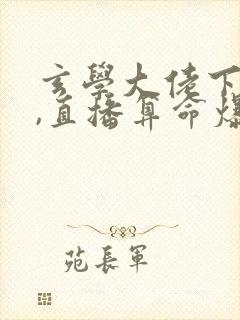 玄學大佬下
,直播算命爆
苑長軍